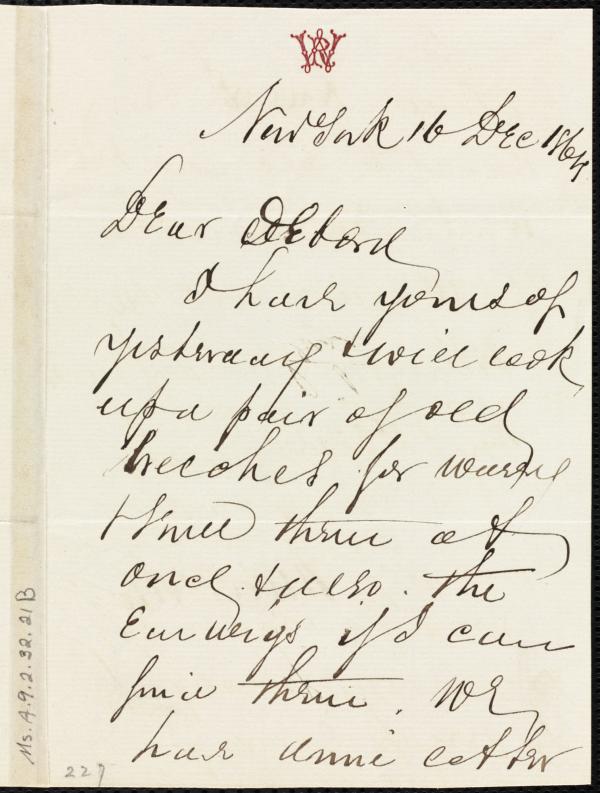 New York 16 Dec 1864
Dear
I have yours of
yesterday & will look
up a pair of old
breeches for
& send them at
once & also. the
if I can
find them. We
have a letter
Ms. A.9.2.32.21B
227